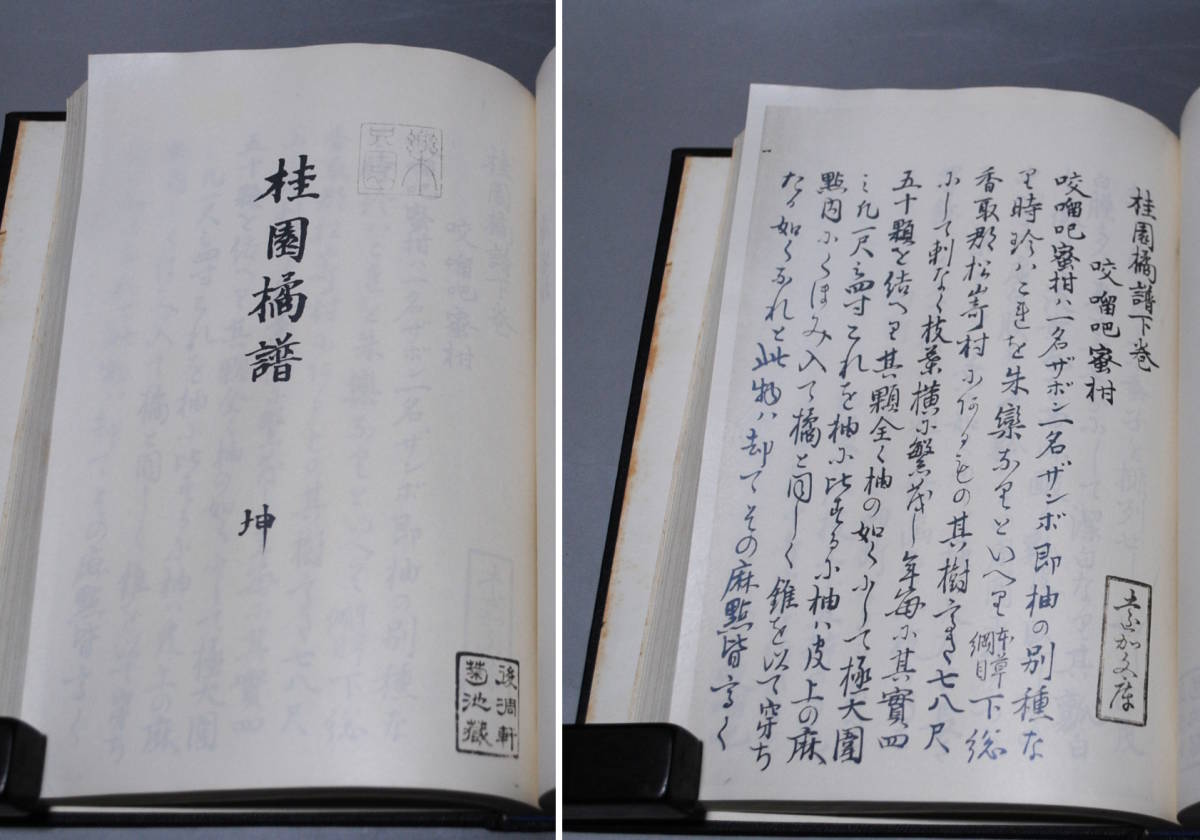 桂園橘譜
坤
後凋軒
菊池蔵
桂園橘譜下巻
咬𠺕吧蜜柑
咬𠺕吧蜜柑ハ一名ザボン二名ザンボ即柚の別種な
り時珍ハこれを朱欒なりといへり本草綱目下総
香取郡松山嵜村に有るもの其樹高さ七八尺
にして刺なく枝葉横に繁茂し年毎に其實四
五十顆を結へり其顆全く柚の如くにして極大圍
ミ凡一尺三四寸これを柚に比するに柚ハ皮上の麻
點内にくほみ入て橘と同しく錐を以て穿ち
たる如くなれと此物ハ却てその麻點皆高く